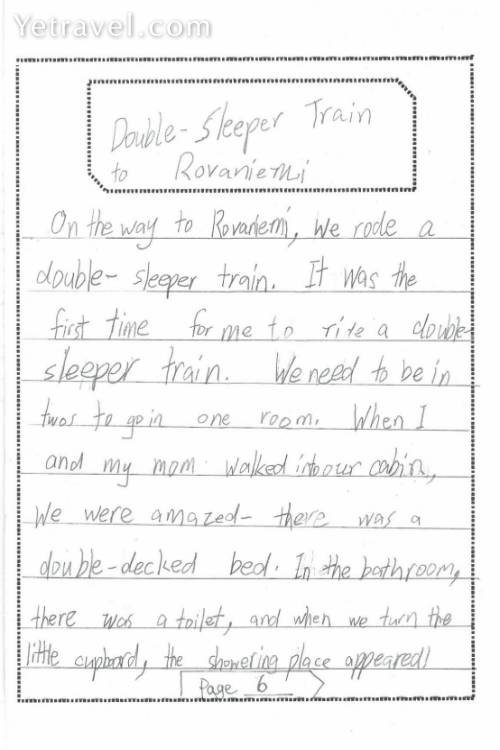 Yetravel.com
Double-Sleeper Train
to Rovaniemi
On the way to Rovaniemi, We rode a
double- sleeper train. It was the
first time for me to ride a double-
sleeper train. We need to be in
twos to go in one room. When I
and my mom walked into our cabin,
We were amazed- there was a
double-decked bed. In the bathroom,
there was a toilet, and when we turn the
little cupboard, the showering place appeared!
Page 6